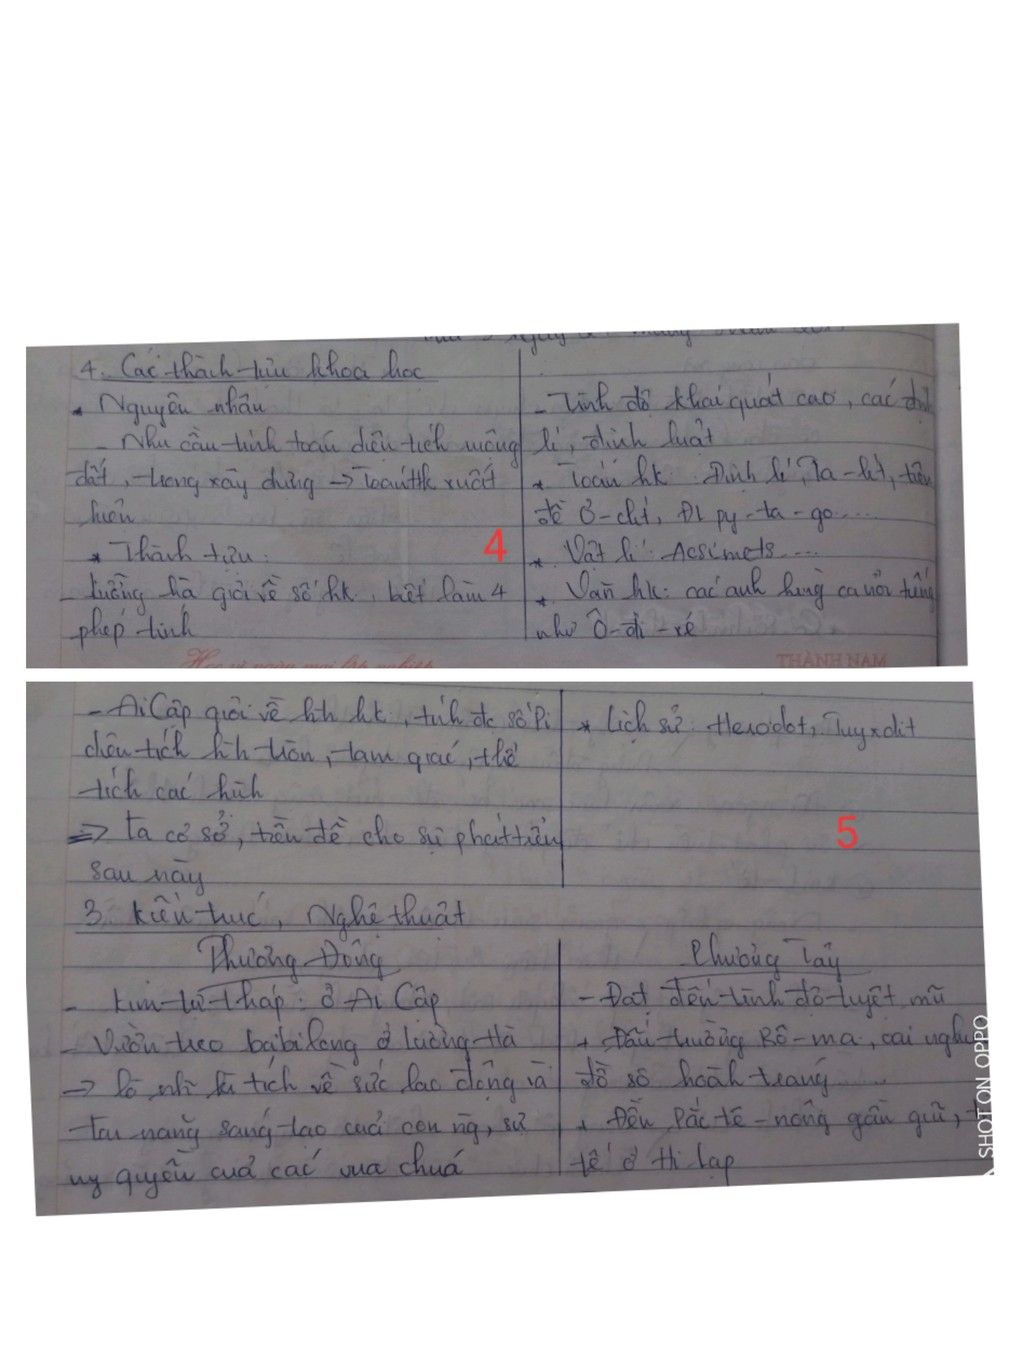 4. Các thành tựu khoa học
* Nguyên nhân
- Nhu cầu tính toán diện tích ruộng
đất, trong xây dựng -> Toán hk xuất
hiện
* Thành tựu:
- Lưỡng Hà giỏi về số hk, biết làm 4
phép tính
4
- Trình độ khái quát cao, các định
lí, định luật
* Toán hk: Định lí Ta-lét, tiên
đề Ơ-clit, ĐL py-ta-go....
* Vật lí: Acsimets....
* Văn hk: các anh hùng ca nổi tiếng
như Ô-đi-xê
THÀNH NAM
- Ai Cập giỏi về hh hk, tính đc số Pi
diện tích hình tròn, tam giác, thể
tích các hình
=> Là cơ sở, tiền đề cho sự phát triển
sau này
* Lịch sử: Herodot, Tuyxdit
5
3. Kiến trúc, Nghệ thuật
Phương Đông
- Kim tự tháp: ở Ai Cập
- Vườn treo babilong ở Lưỡng Hà
-> là kì tích về sức lao động và
tài năng sáng tạo của con ng, sự
uy quyền của các vua chúa
Phương Tây
- Đạt đến trình độ tuyệt mĩ
+ Đấu trường Rô-ma, oai nghi
đồ sộ hoành tráng.....
+ Đền Pác-tê-nông gần gũi,
tế ở Hi Lạp
SHOT ON OPPO